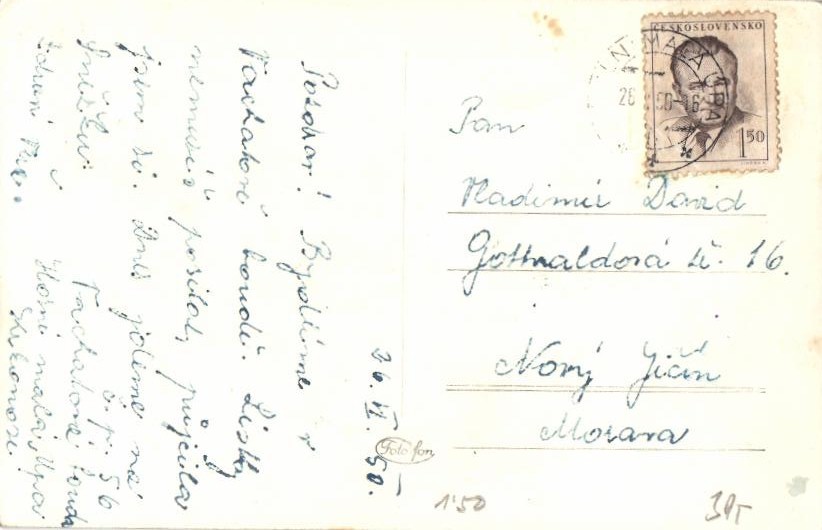 Pozdrav! Bydlíme v
Tachatově boudě. Lístky
nemusíš posílat, půjčila
jsem si. Dnes jdeme na
Sněžku.
Zdeni
Tachatova bouda
č. p. 56
Horní malá Úpa
Krkonoše
26. VI. 50.
Foto fon
ČESKOSLOVENSKO
1 50
MALÁ ÚPA
26
50-16
Pan
Vladimír David
Gottwaldová ul. 16.
Nový Jičín
Morava
1'50